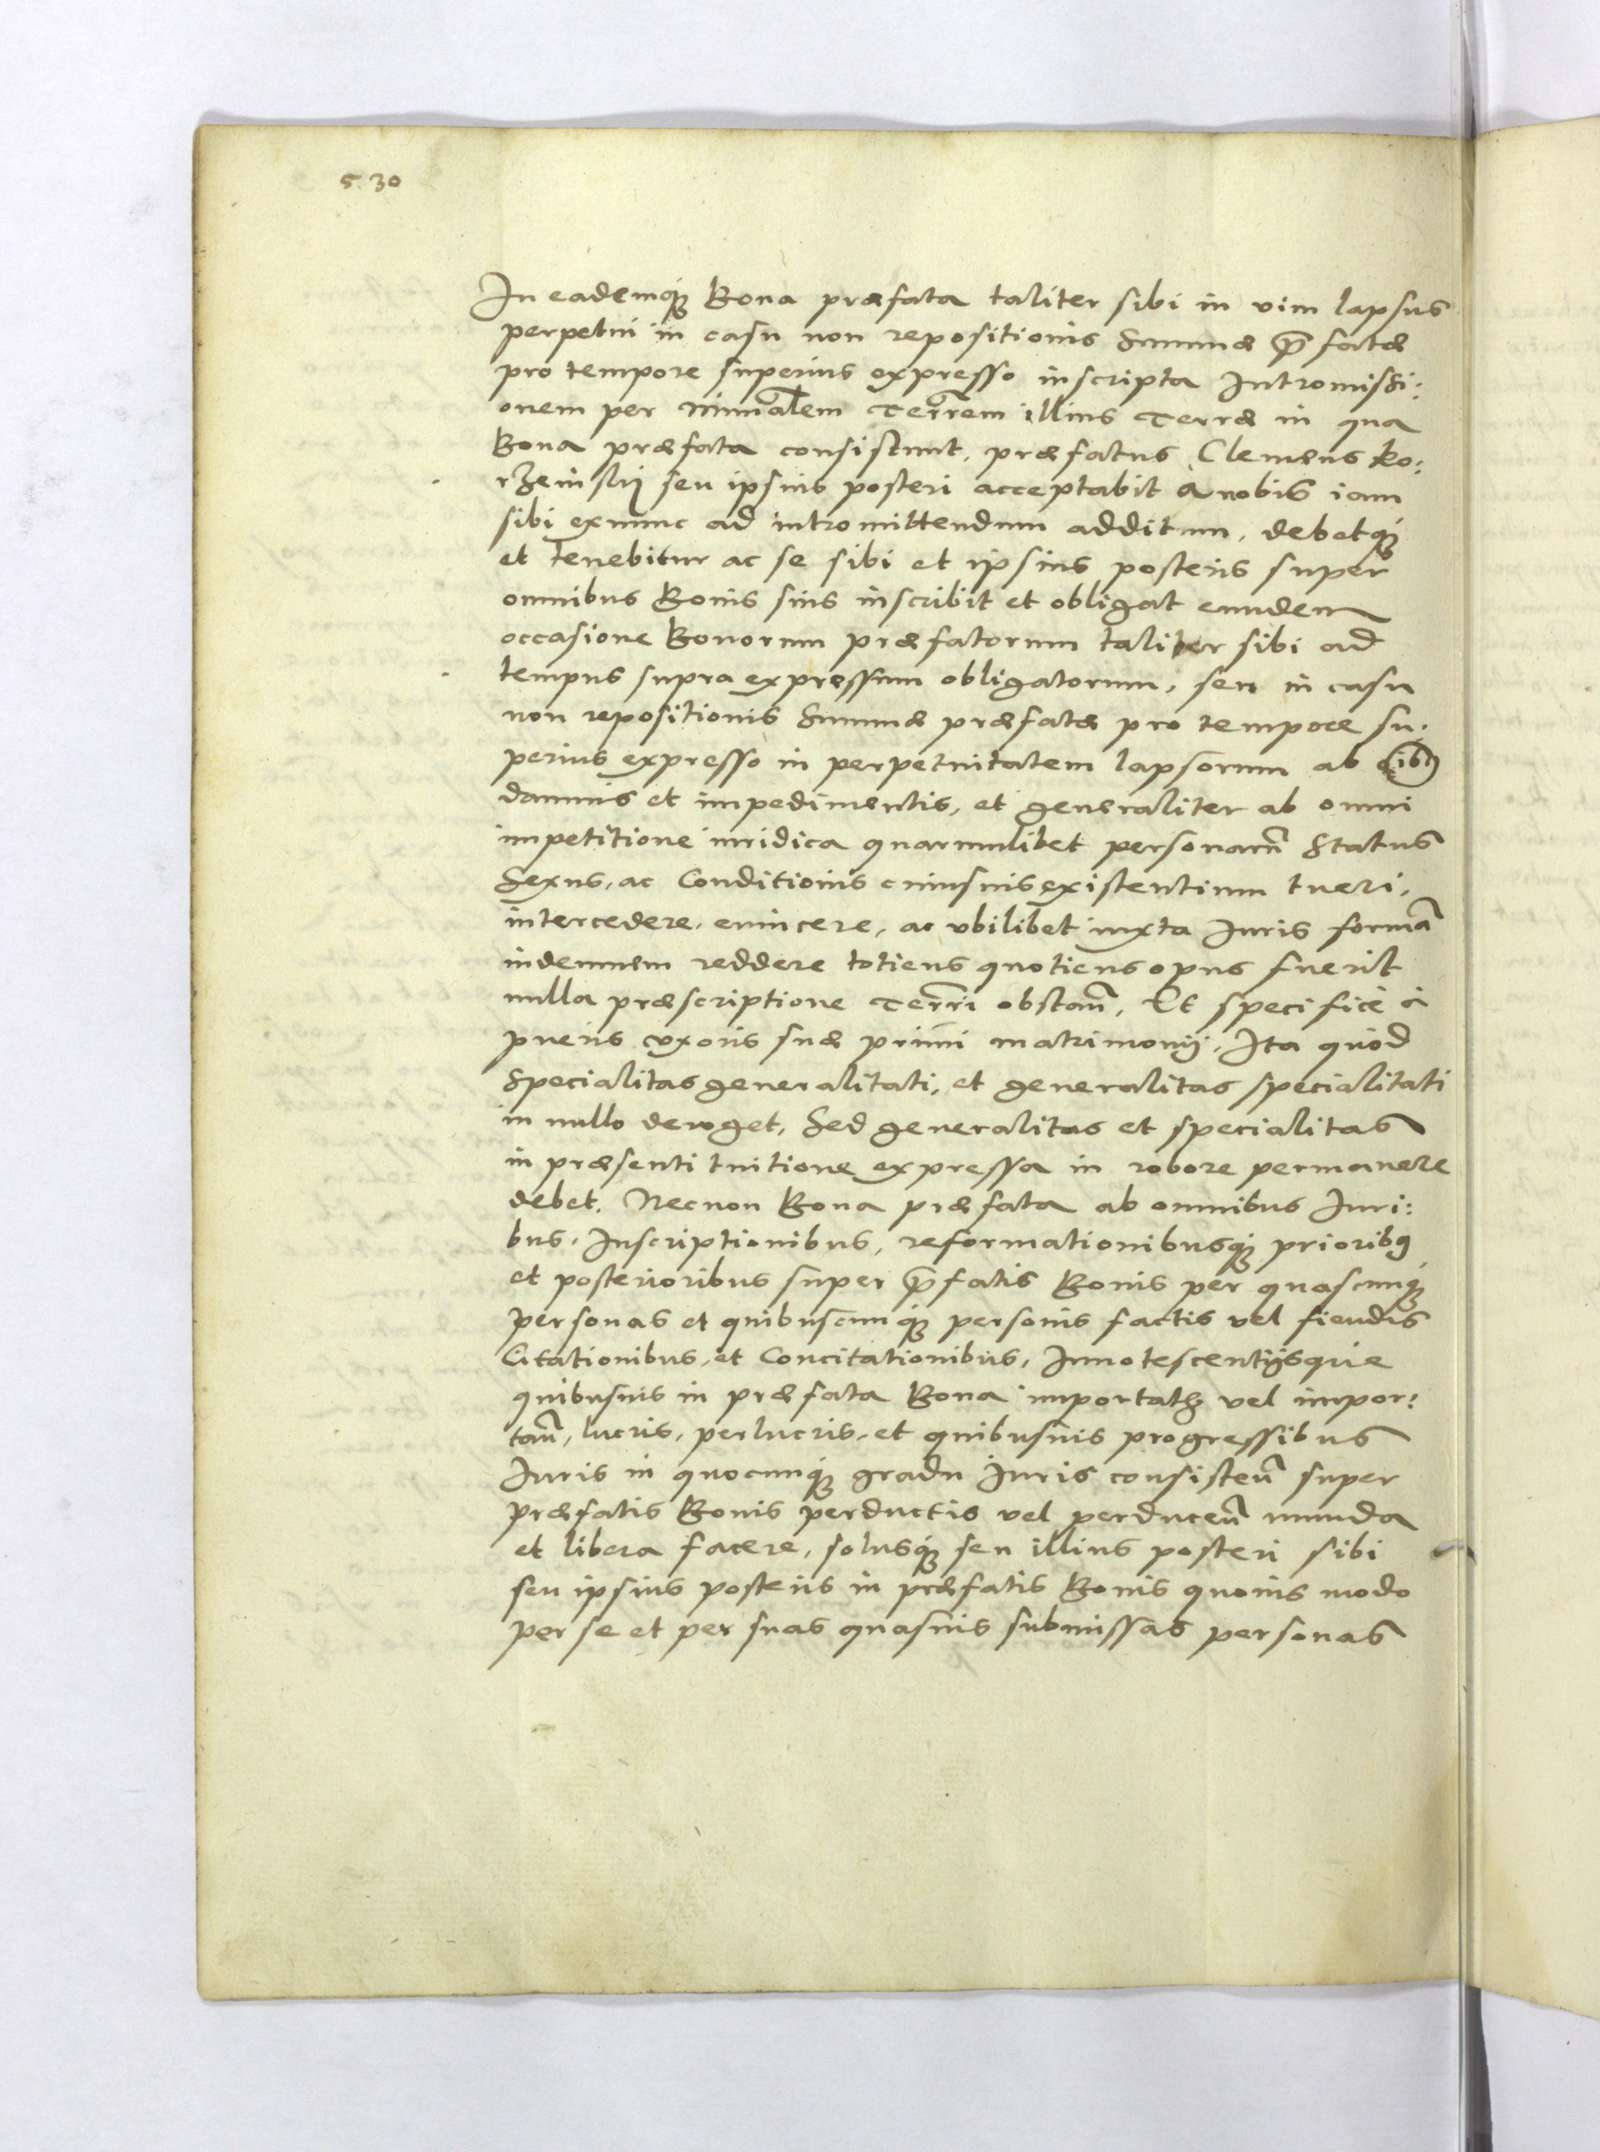 530
In eademq́ꝫ Bona præfata taliter sibi in vim lapsus
perpetui in casu non repositionis Summæ p̄fatæ
pro tempore superius expresso inscripta Intromissi:
onem per Minīalem Terr̄em illius Terræ in qua
Bona præfata consistunt, præfatus Clemens Ko:
rzeinskij seu ipsius posteri acceptabit a nobis iam
sibi exnunc ad intromittendum additum, debetq́ꝫ
et tenebitur ac se sibi et ipsius posteris super
omnibus Bonis suis inscribit et obligat eundem
occasione Bonorum præfatorum taliter sibi ad
tempus supra expressum obligatorum, seu in casu
non repositionis Summæ præfatæ pro tempore su:
perius expresso in perpetuitatem lapsorum ab
damnis et impedimentis, et generaliter ab omni
impetitione iuridica quarumlibet personarū Status
Sexus, ac Conditionis cuiusuis existentium tueri,
intercedere, euincere, ac vbilibet iuxta Iuris formā
indemnem reddere totiens quotiens opus fuerit
nulla præscriptione Terr̄ri obstan̄, Et specificè à
pueris vxoris suæ primi matrimonij, Ita quòd
Specialitas generalitati, et generalitas specialitati
in nullo deroget, Sed generalitas et specialitas
in præsenti tuitione expressa in robore permanere
debet, Necnon Bona præfata ab omnibus Iuri:
bus, Inscriptionibus, reformationibusq́ꝫ prioribꝯ
et posterioribus super p̄fatis Bonis per quascunq́ꝫ
personas et quibuscunq́ꝫ personis factis vel fiendis
Citationibus, et Concitationibus, Innotescentijsque
quibusuis in præfata Bona importatꝫ vel impor:
tan̄, lucris, perlucris, et quibusuis progressibus
Iuris in quocunq́ꝫ gradu Iuris consisten̄ super
præfatis Bonis perductis vel perducen̄ munda
et libera facere, solusq́ꝫ seu illius posteri sibi
seu ipsius posteris in præfatis Bonis quouis modo
per se et per suas quasuis submissas personas